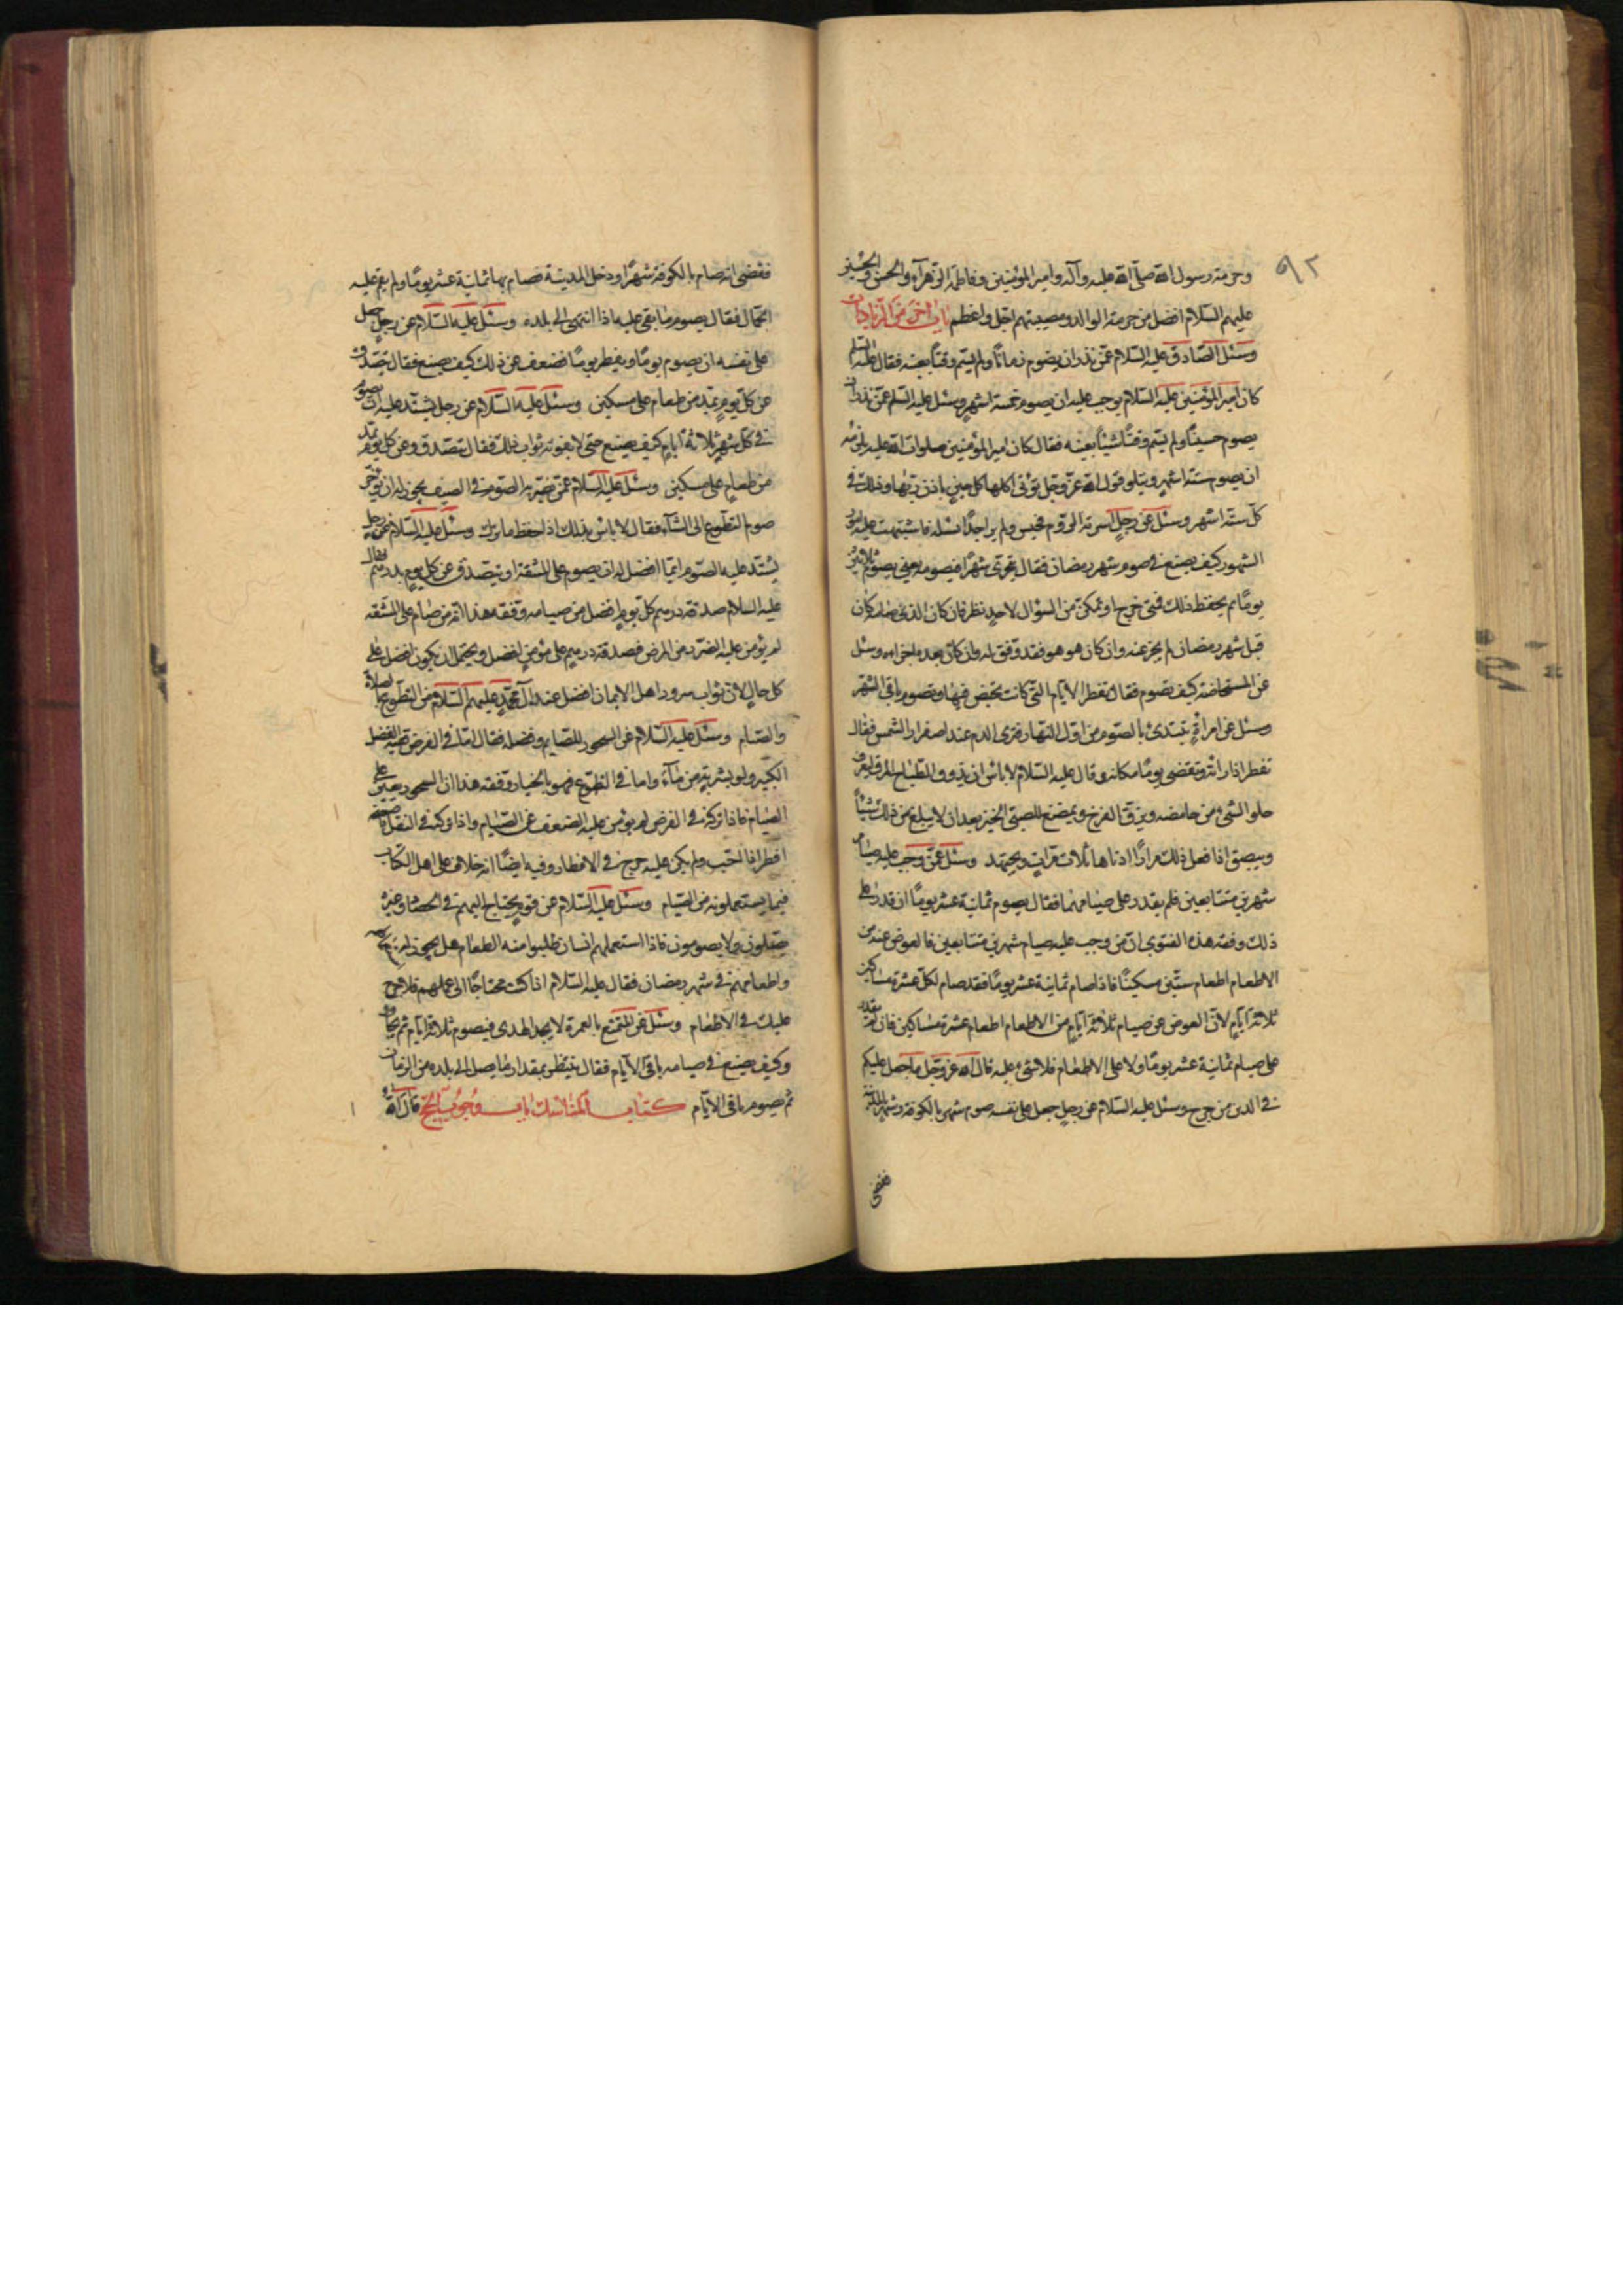 ٩٢
وحرمة رسول الله صلى الله عليه وآله وامير المؤمنين وفاطمة الزهراء والحسن والحسين
عليهم السلام افضل من حرمة الوالد ومصيبتهم اجل واعظم باب اخر من الزيادات
وسئل الصادق عليه السلام عمن نذر ان يصوم زمانا ولم يسم وقتا بعينه فقال عليه السلام
كان امير المؤمنين عليه السلام يوجب عليه ان يصوم خمسة اشهر وسئل عليه السلم عمن نذر ان
يصوم حينا ولم يسم وقتا شيئا بعينه فقال كان امير المؤمنين صلوات الله عليه يلزمه
ان يصوم ستة اشهر ويتلو قول الله عز وجل تؤتى اكلها كل حين باذن ربها وذلك في
كل ستة اشهر وسئل عن رجل اسرته الروم فحبس ولم ير احدا يسئله فاشتبهت عليه امور
الشهور كيف يصنع في صوم شهر رمضان فقال يتحرى شهرا فيصومه يعني يصوم ثلاثين
يوما ثم يحفظ ذلك فمتى خرج او تمكن من السؤال لاحد نظر فان كان الذي صامه كان
قبل شهر رمضان لم يجز عنه وان كان هو هو فقد وفق له وان كان بعده اجزاه وسئل
عن المستحاضة كيف تصوم فقال تفطر الايام التي كانت تحيض فيها وتصوم باقي الشهر
وسئل عن امراة تبتدئ بالصوم من اول النهار فترى الدم عند اصفرار الشمس فقال
تفطر اذا راته وتقضى يوما مكانه وقال عليه السلام لا باس ان يذوق الطباخ المرق ليعرف
حلو الشئ من حامضه ويزق الفرخ ويمضغ للصبي الخبز بعد ان لا يبلع من ذلك شيئا
ويبصق اذا فعل ذلك مرارا ادناها ثلاث مرات ويجتهد وسئل عمن وجب عليه صيام
شهرين متتابعين فلم يقدر على صيامهما فقال يصوم ثمانية عشر يوما ان قدر على
ذلك وفقه هذه الفتوى ان من وجب عليه صيام شهرين متتابعين فالعوض عنه من
الاطعام اطعام ستين مسكينا فاذا صام ثمانية عشر يوما فقد صام لكل عشرة مساكين
ثلاثة ايام لان العوض عن صيام ثلاثة ايام من الاطعام اطعام عشرة مساكين فان لم يقدر
على صيام ثمانية عشر يوما ولا على الاطعام فلا شئ عليه قال الله عز وجل ما جعل عليكم
في الدين من حرج وسئل عليه السلام عن رجل جعل على نفسه صوم شهر بالكوفة وشهر بالمدينة
فقضى
فقضى انه صام بالكوفة شهرا ودخل المدينة فصام بها ثمانية عشر يوما ولم يقم عليه
الجمال فقال يصوم ما بقى عليه اذا انتهى الى بلده وسئل عليه السلام عن رجل جعل
على نفسه ان يصوم يوما ويفطر يوما فضعف عن ذلك كيف يصنع فقال يتصدق
عن كل يوم بمد من طعام على مسكين وسئل عليه السلام عن رجل يشتد عليه ان يصوم
في كل شهر ثلاثة ايام كيف يصنع حتى لا يفوته ثواب ذلك فقال يتصدق عن كل يوم بمد
من طعام على مسكين وسئل عليه السلام عمن يضر به الصوم في الصيف يجوز له ان يؤخر
صوم التطوع الى الشتاء فقال لا باس بذلك اذا حفظ ما ترك وسئل عليه السلام عن رجل
يشتد عليه الصوم ايما افضل له ان يصوم على المشقة او يتصدق عن كل يوم بدرهم فقال
عليه السلام صدقة درهم كل يوم افضل من صيامه وفقه هذا انه من صام على المشقة
لم يؤمن عليه الضرر من المرض فصدقة درهم على مؤمن افضل ويحتمل ان يكون افضل على
كل حال لان ثواب سرور اهل الايمان افضل عند آل محمد عليهم السلام من التطوع بالصلاة
والصيام وسئل عليه السلام عن السحور للصائم وفضله فقال اما في الفرض ففيه الفضل
الكبير ولو بشربة من ماء واما في التطوع فهو بالخيار وفقه هذا ان السحور يعين على
الصيام فاذا تركه في الفرض لم يؤمن عليه الضعف عن الصيام واذا تركه في النفل
افطر اذا احب ولم يكن عليه حرج في الافطار وفيه ايضا انه خلاف على اهل الكتاب
فيما يستعملونه من الصيام وسئل عليه السلام عن قوم يحتاج اليهم في الحصاد وغيره
يصلون ولا يصومون فاذا استعملهم انسان طلبوا منه الطعام هل يجوز له
واطعامهم في شهر رمضان فقال عليه السلام اذا كنت محتاجا الى عملهم فلا حرج
عليك في الاطعام وسئل عن المتمتع بالعمرة لا يجد الهدى فيصوم ثلاثة ايام ثم يجاور
وكيف يصنع في صيامه باقي الايام فقال ينتظر بمقدار ما يصل الى بلده من الزمان
ثم يصوم باقي الايام كتاب المناسك باب وجوب الحج قال الله